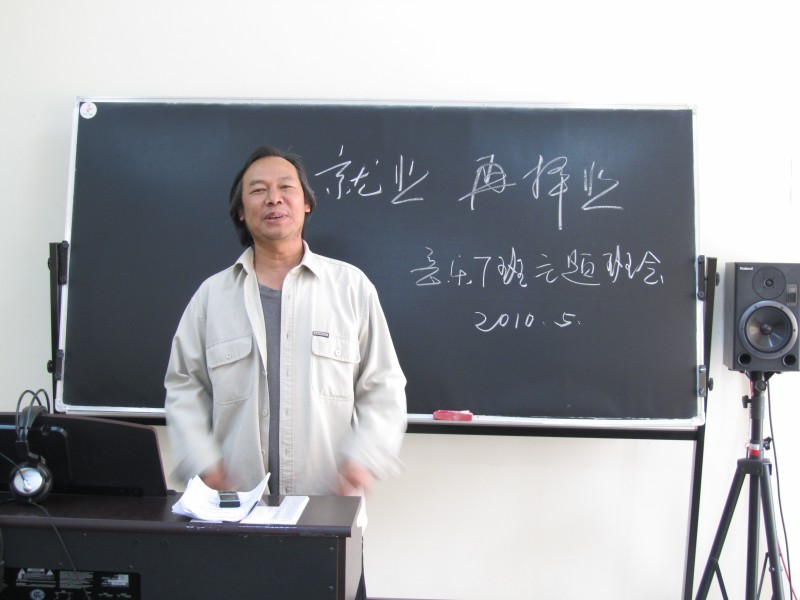 就业 再择业
音乐7班主题班会
2010.5.
Roland